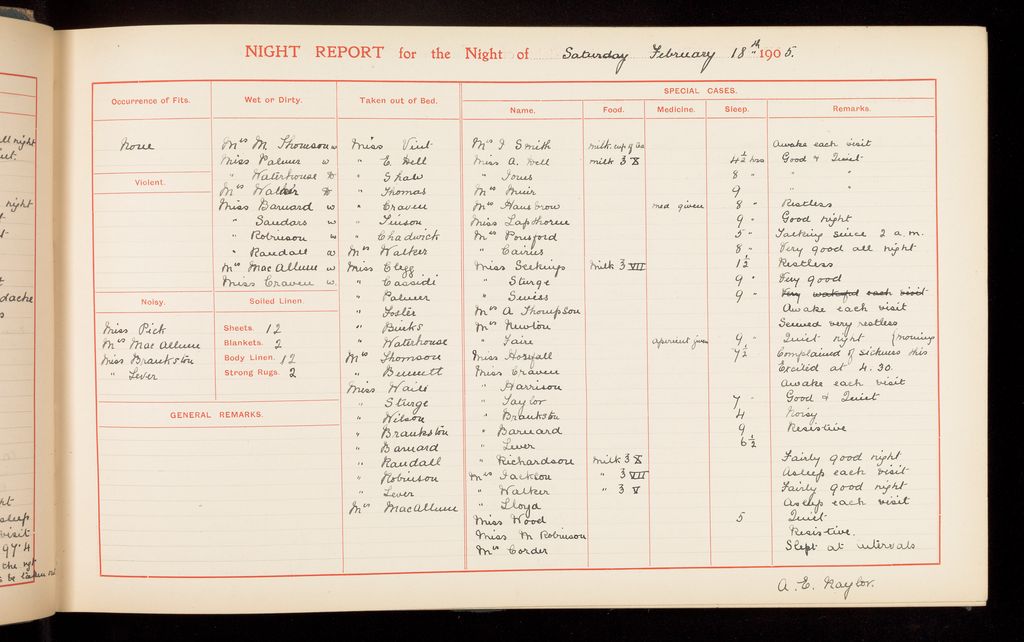 NIGHT REPORT for the Night of Saturday February 18th 1905.
Occurrence of Fits.
None
Violent.
Noisy.
Miss Pick
Mrs Mac Allum
Miss Brankston
" Lever
Wet or Dirty.
Mrs M Thomson w
Miss Palmer w
" Waterhouse
Mrs Walker
Miss Barnard w
" Sandars w
" Robinson w
" Randall w
Mrs MacAllum w
Miss Craven w.
Soiled Linen.
Sheets. 12
Blankets. 2
Body Linen. 12
Strong Rugs. 2
GENERAL REMARKS.
Taken out of Bed.
Miss Vint
" E. Hell
" Shaw
" Thomas
" Craven
" Tinson
" Chadwick
Mrs Walker
Miss Clegg
" Cassidi
" Palmer
" Foster
" Binks
" Waterhouse
Mrs Thomson
" Bennett
Miss Waile
" Sturge
" Wilson
" Brankston
" Barnard
" Randall
" Robinson
" Lever
Mrs MacAllum
SPECIAL CASES.
Name. Food. Medicine. Sleep. Remarks.
Mrs J Smith milk. cup of Awake each visit
Miss A. Hell milk ℥ X 4½ hrs Good & Quiet
" Jones 8 " " "
Mrs Muir 9
Mrs Hansbrow med given 8 " Restless
Miss Lapthorne 9 " Good night
Mrs Ponsford 5 " Talking since 2 a.m.
" Cairns 8 " Very good all night
Miss Seekings Milk ℥ VII 1½ Restless
" Sturge 9 " Very good
" Swiss 9 " Very wakeful each visit
Mrs A Thompson Awake each visit
Mrs Newton Seemed very restless
" Faire aperient given 9 " Quiet night (morning
Miss Horsfall 7½ Complained of sickness this
Miss Craven Excited at 4.30.
" Harrison Awake each visit
" Taylor 7 " Good & Quiet
" Brankston 4 Noisy
" Barnard 9 Resistive
" Lever 6½
" Richardson Milk ℥ X Fairly good night
Mrs Jackson " ℥ VII Asleep each visit
" Walker " ℥ V Fairly good night
" Lloyd Asleep each visit
Miss Wood 5 Quiet
Miss M Robinson Resistive.
Mrs Corder Slept at intervals
A. E. Naylor.